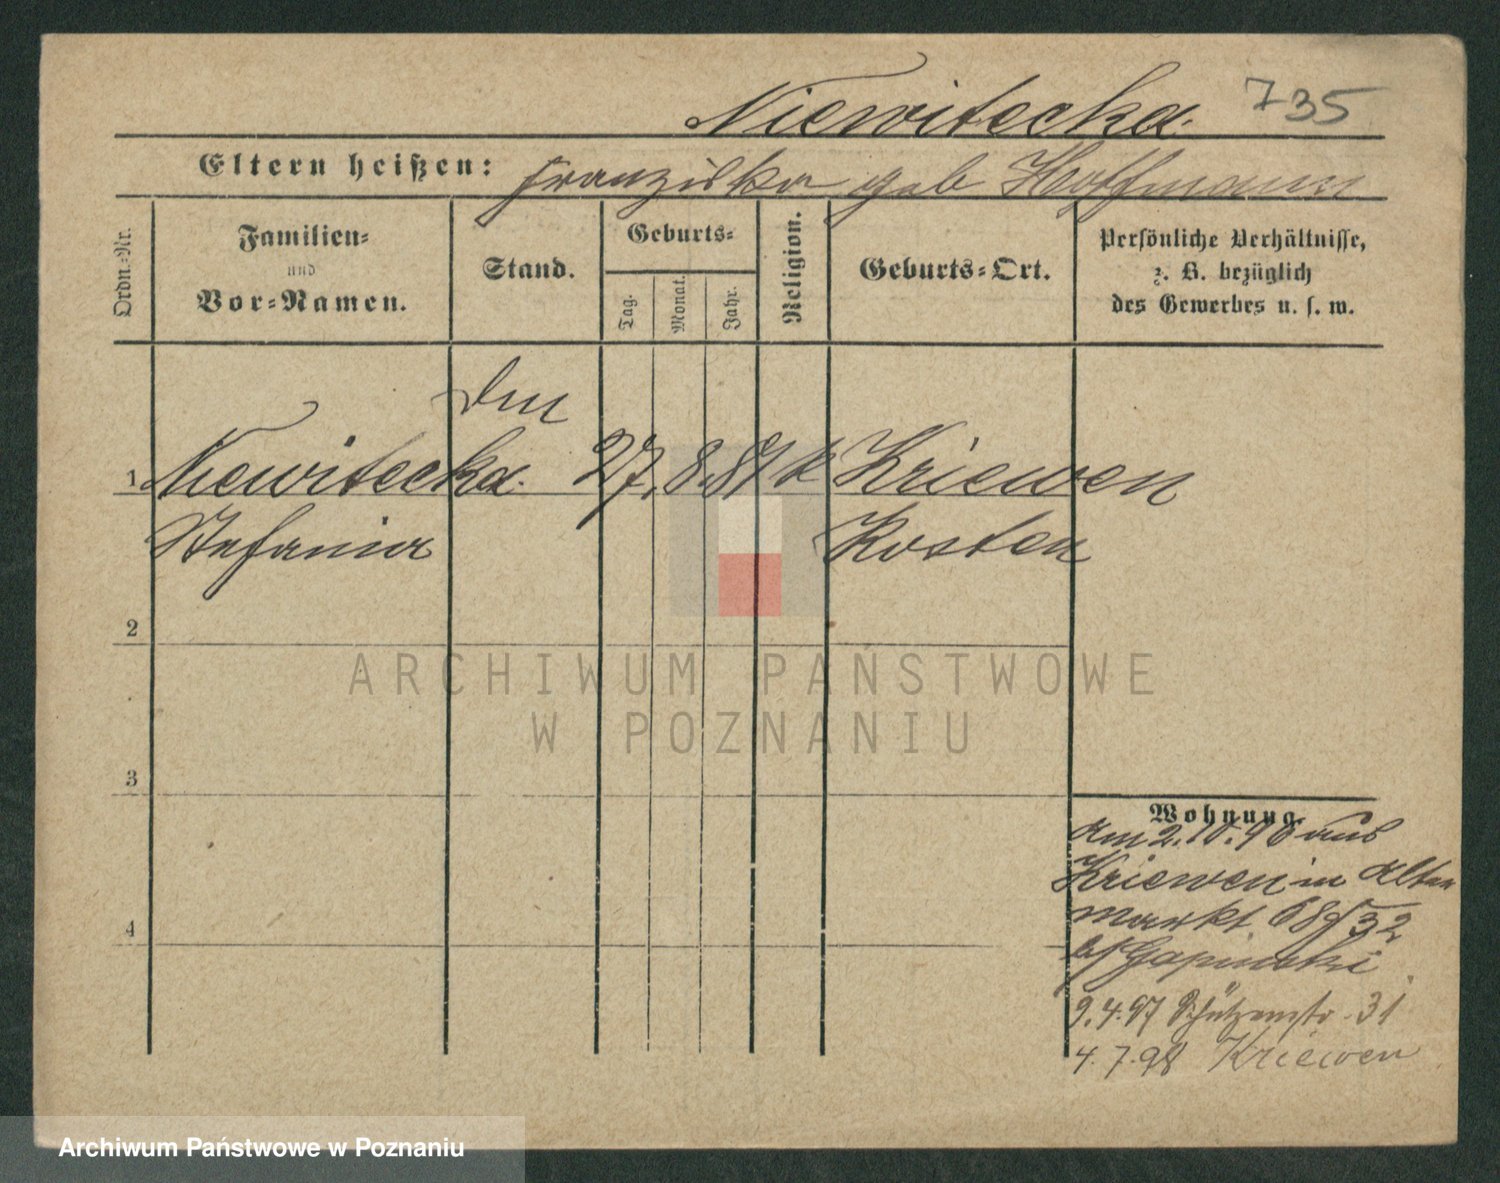 Niewitecka. 735
Eltern heißen: Franziska geb Hoffmann
Ordn.-Nr.
Familien-
und
Vor-Namen.
Stand.
Geburts-
Tag.
Monat.
Jahr.
Religion.
Geburts-Ort.
Persönliche Verhältnisse,
z. B. bezüglich
des Gewerbes u. s. w.
1 Niewitecka. 27. 8. 81 k Kriewen
Stefania Kosten
2
3
4
Wohnung.
am 2.10.96 aus
Kriewen in Alten
markt 68/52
b/ Gapinski
9.4.97 Schützenstr. 31
4.7.98 Kriewen
ARCHIWUM PAŃSTWOWE
W POZNANIU
Archiwum Państwowe w Poznaniu